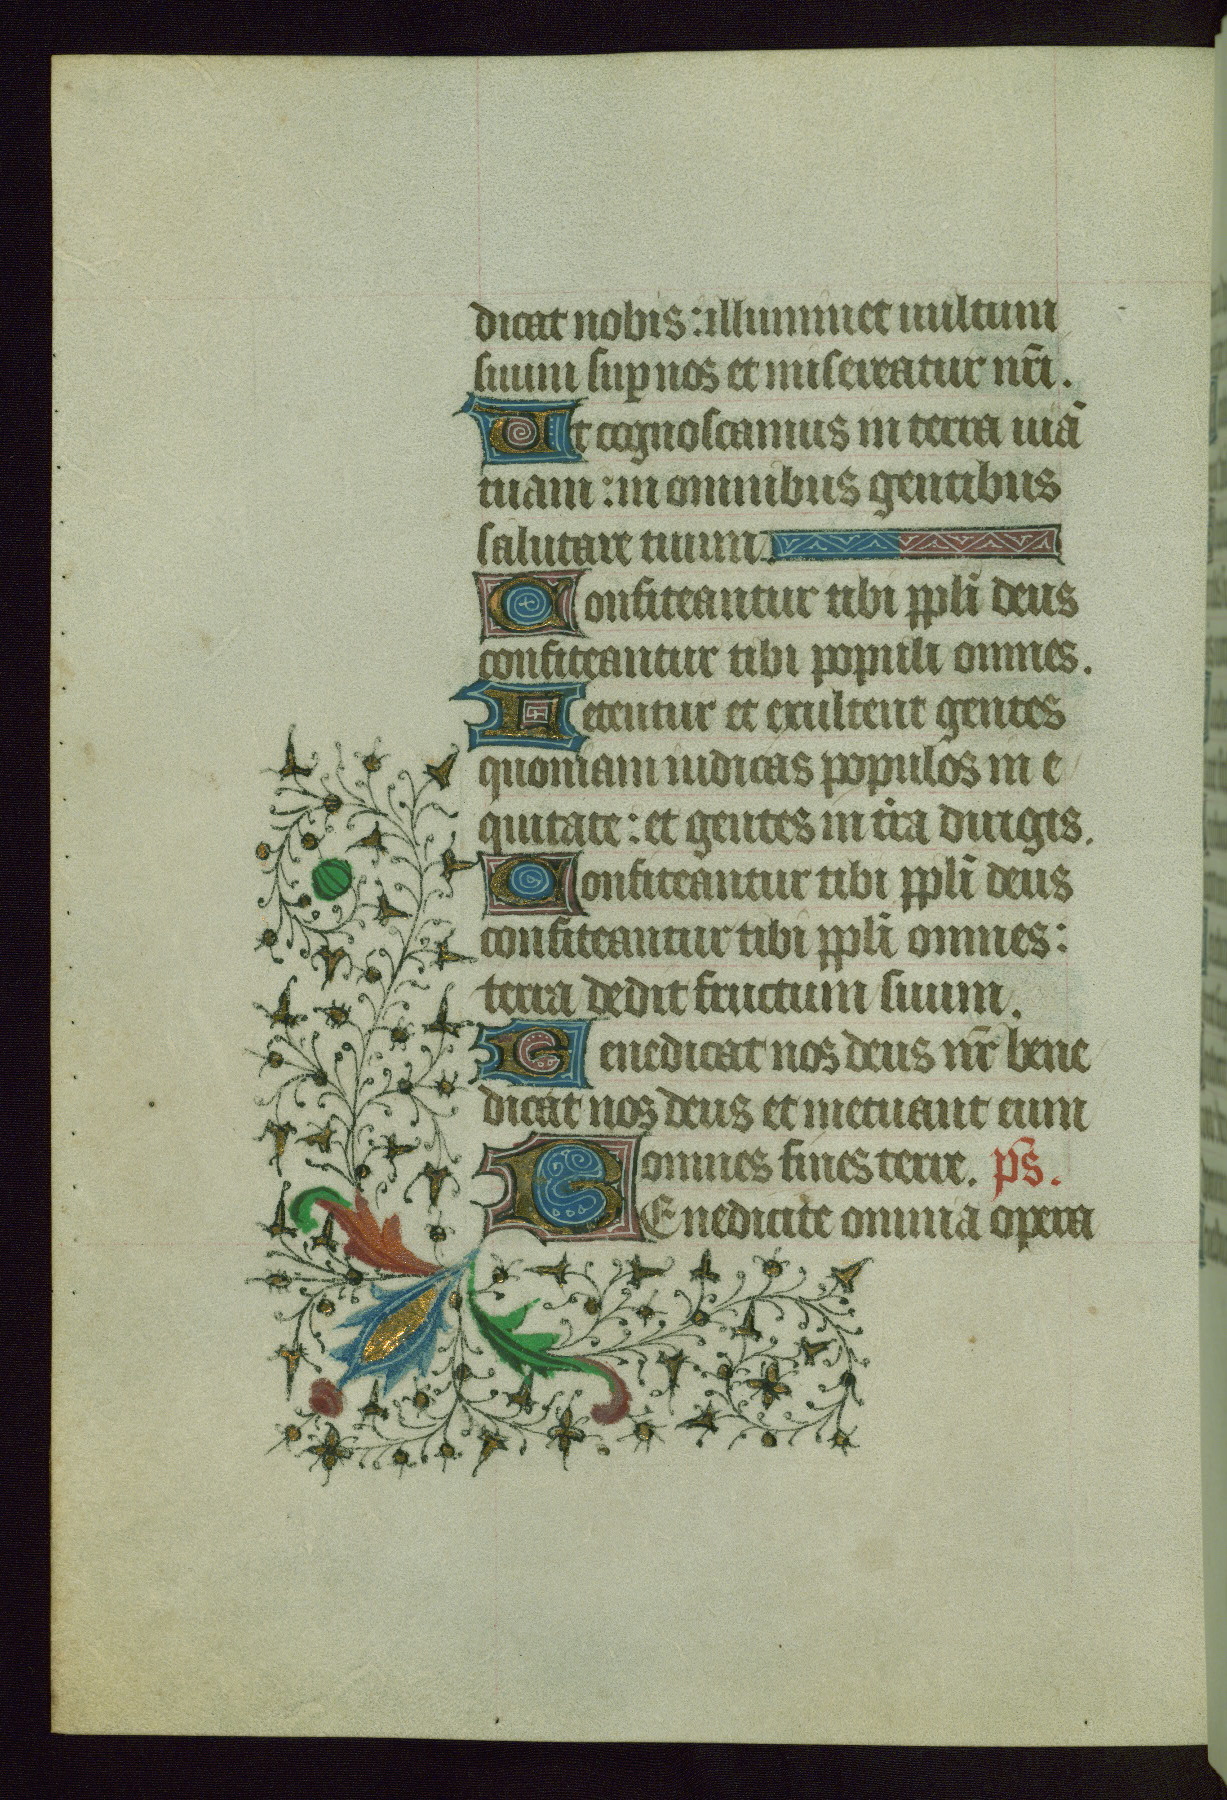 dicat nobis : illuminet uultum
suum sup nos et misereatur nr̄i .
Ut cognoscamus in terra uiā
tuam : in omnibus gentibus
salutare tuum .
Confiteantur tibi ppl̄i deus
confiteantur tibi populi omnes .
Letentur et exultent gentes
quoniam iudicas populos in e
quitate : et gentes in tr̄a dirigis .
Confiteantur tibi ppl̄i deus
confiteantur tibi ppl̄i omnes :
terra dedit fructum suum .
Benedicat nos deus nr̄ bene
dicat nos deus et metuant eum
omnes fines terre . ps̄ .
BEnedicite omnia opera